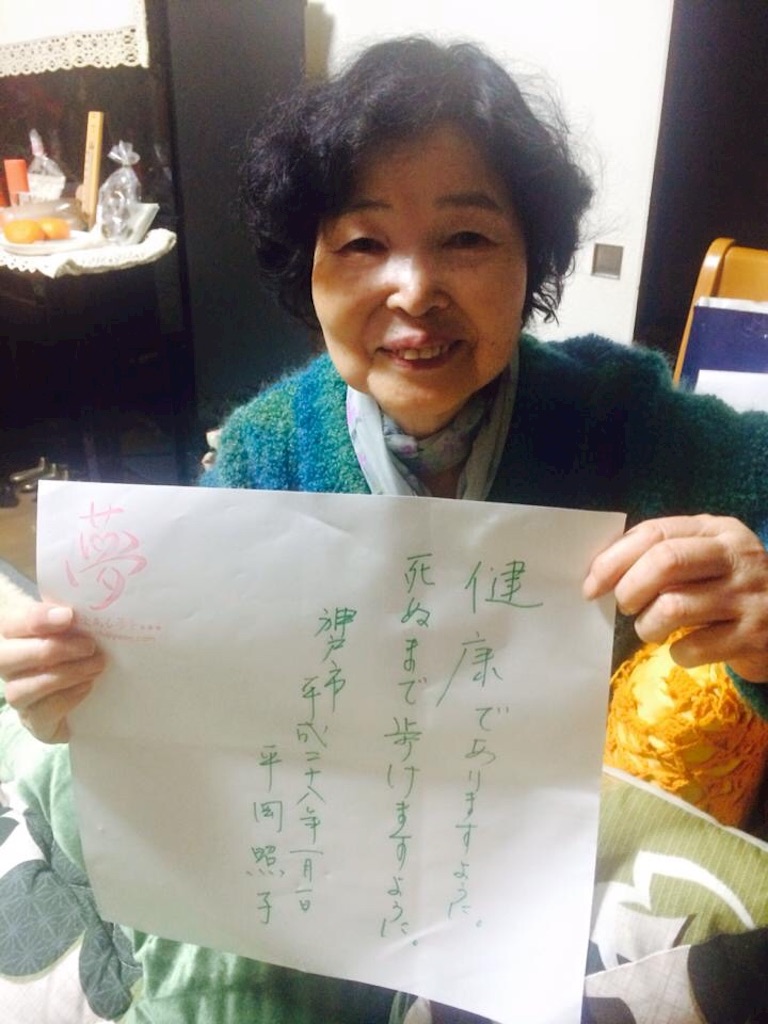 健康でありますように。
死ぬまで歩けますように。
神戸市
平成二十八年一月一日
平岡照子
夢